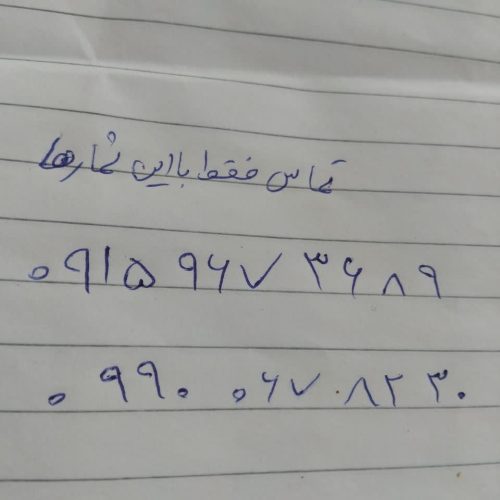 تماس فقط با این شمارها
۰۹۱۵ ۹۶۷ ۳۶ ۸۹
۰ ۹۹۰ ۰۶۷۰۸۲۳۰